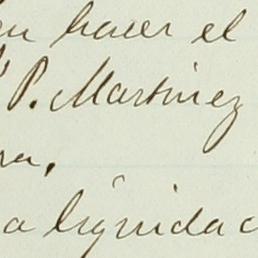 hacer el
P. Martinez
ra.
a liquidac